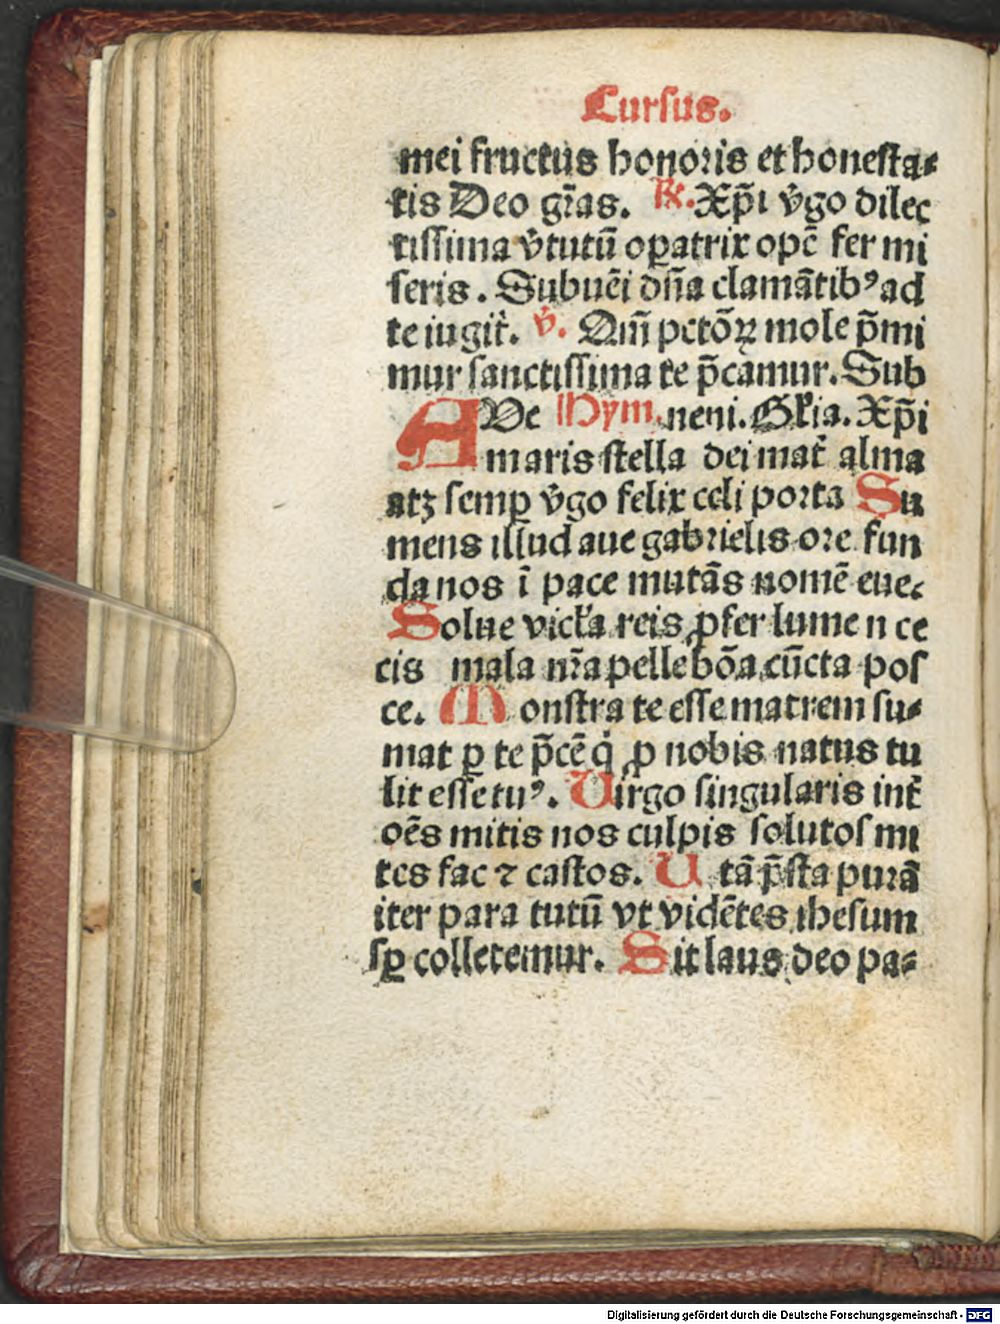 Cursus.
mei fructus honoris et honesta⸗
tis Deo gr̄as. ℟. Xp̄i v̓go dilec
tissima v̓tutū oꝑatrix opē fer mi
seris. Subuēi dn̄a clamātibꝰ ad
te iugit᷑. v̓. Qm̄ pctōꝝ mole p̄mi
mur sanctissima te p̄camur. Sub
AVe Hym neni. Gl̓ia. Xp̄i
maris stella dei mat᷑ alma
atꝫ semꝑ v̓go felix celi porta Su
mens illud aue gabrielis ore fun
da nos ī pace mutās nomē eue.
Solue vicl̓a reis ꝓfer lume n ce
cis mala nr̄a pelle bōa cūcta pos
ce. Monstra te esse matrem su⸗
mat ꝑ te p̄cē q̇ ꝓ nobis natus tu
lit esse tuꝰ. Uirgo singularis int᷑
oēs mitis nos culpis solutos mi
tes fac ⁊ castos. U tā p̄sta purā
iter para tutū vt vidētes ihesum
sꝑ colletemur. Sit laus deo pa⸗
Digitalisierung gefördert durch die Deutsche Forschungsgemeinschaft - DFG